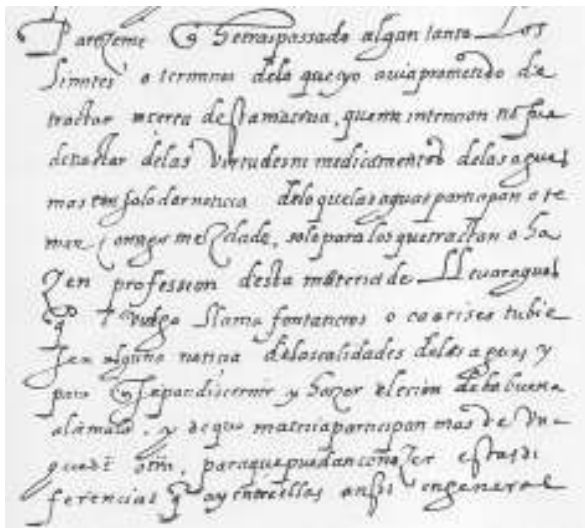 Pareçeme q̃ setraspassado algan tanto Los
limites o terminos delo queyo auia prometido de
tractar açerca destamateria, quemi intencion no fue
detractar delas Virtudes ni medicamentos delas aguas
mas tan solo dar noticia delo quelas aguas participan o te
man consigo mezclado, solo para los quetractan o ha
zen profession desta materia de Lleuaraguas
q̃ el vulgo llama fontaneros o caorises tubie
sen alguna noticia delas calidades delas aguas y
para q̃ sepan discernir y hazer elecion dela buena
alamala, y deque materia participan mas de vn
que de otra, paraque puedan conoçer estas di
ferencias q̃ ay entre ellas ansi engeneral